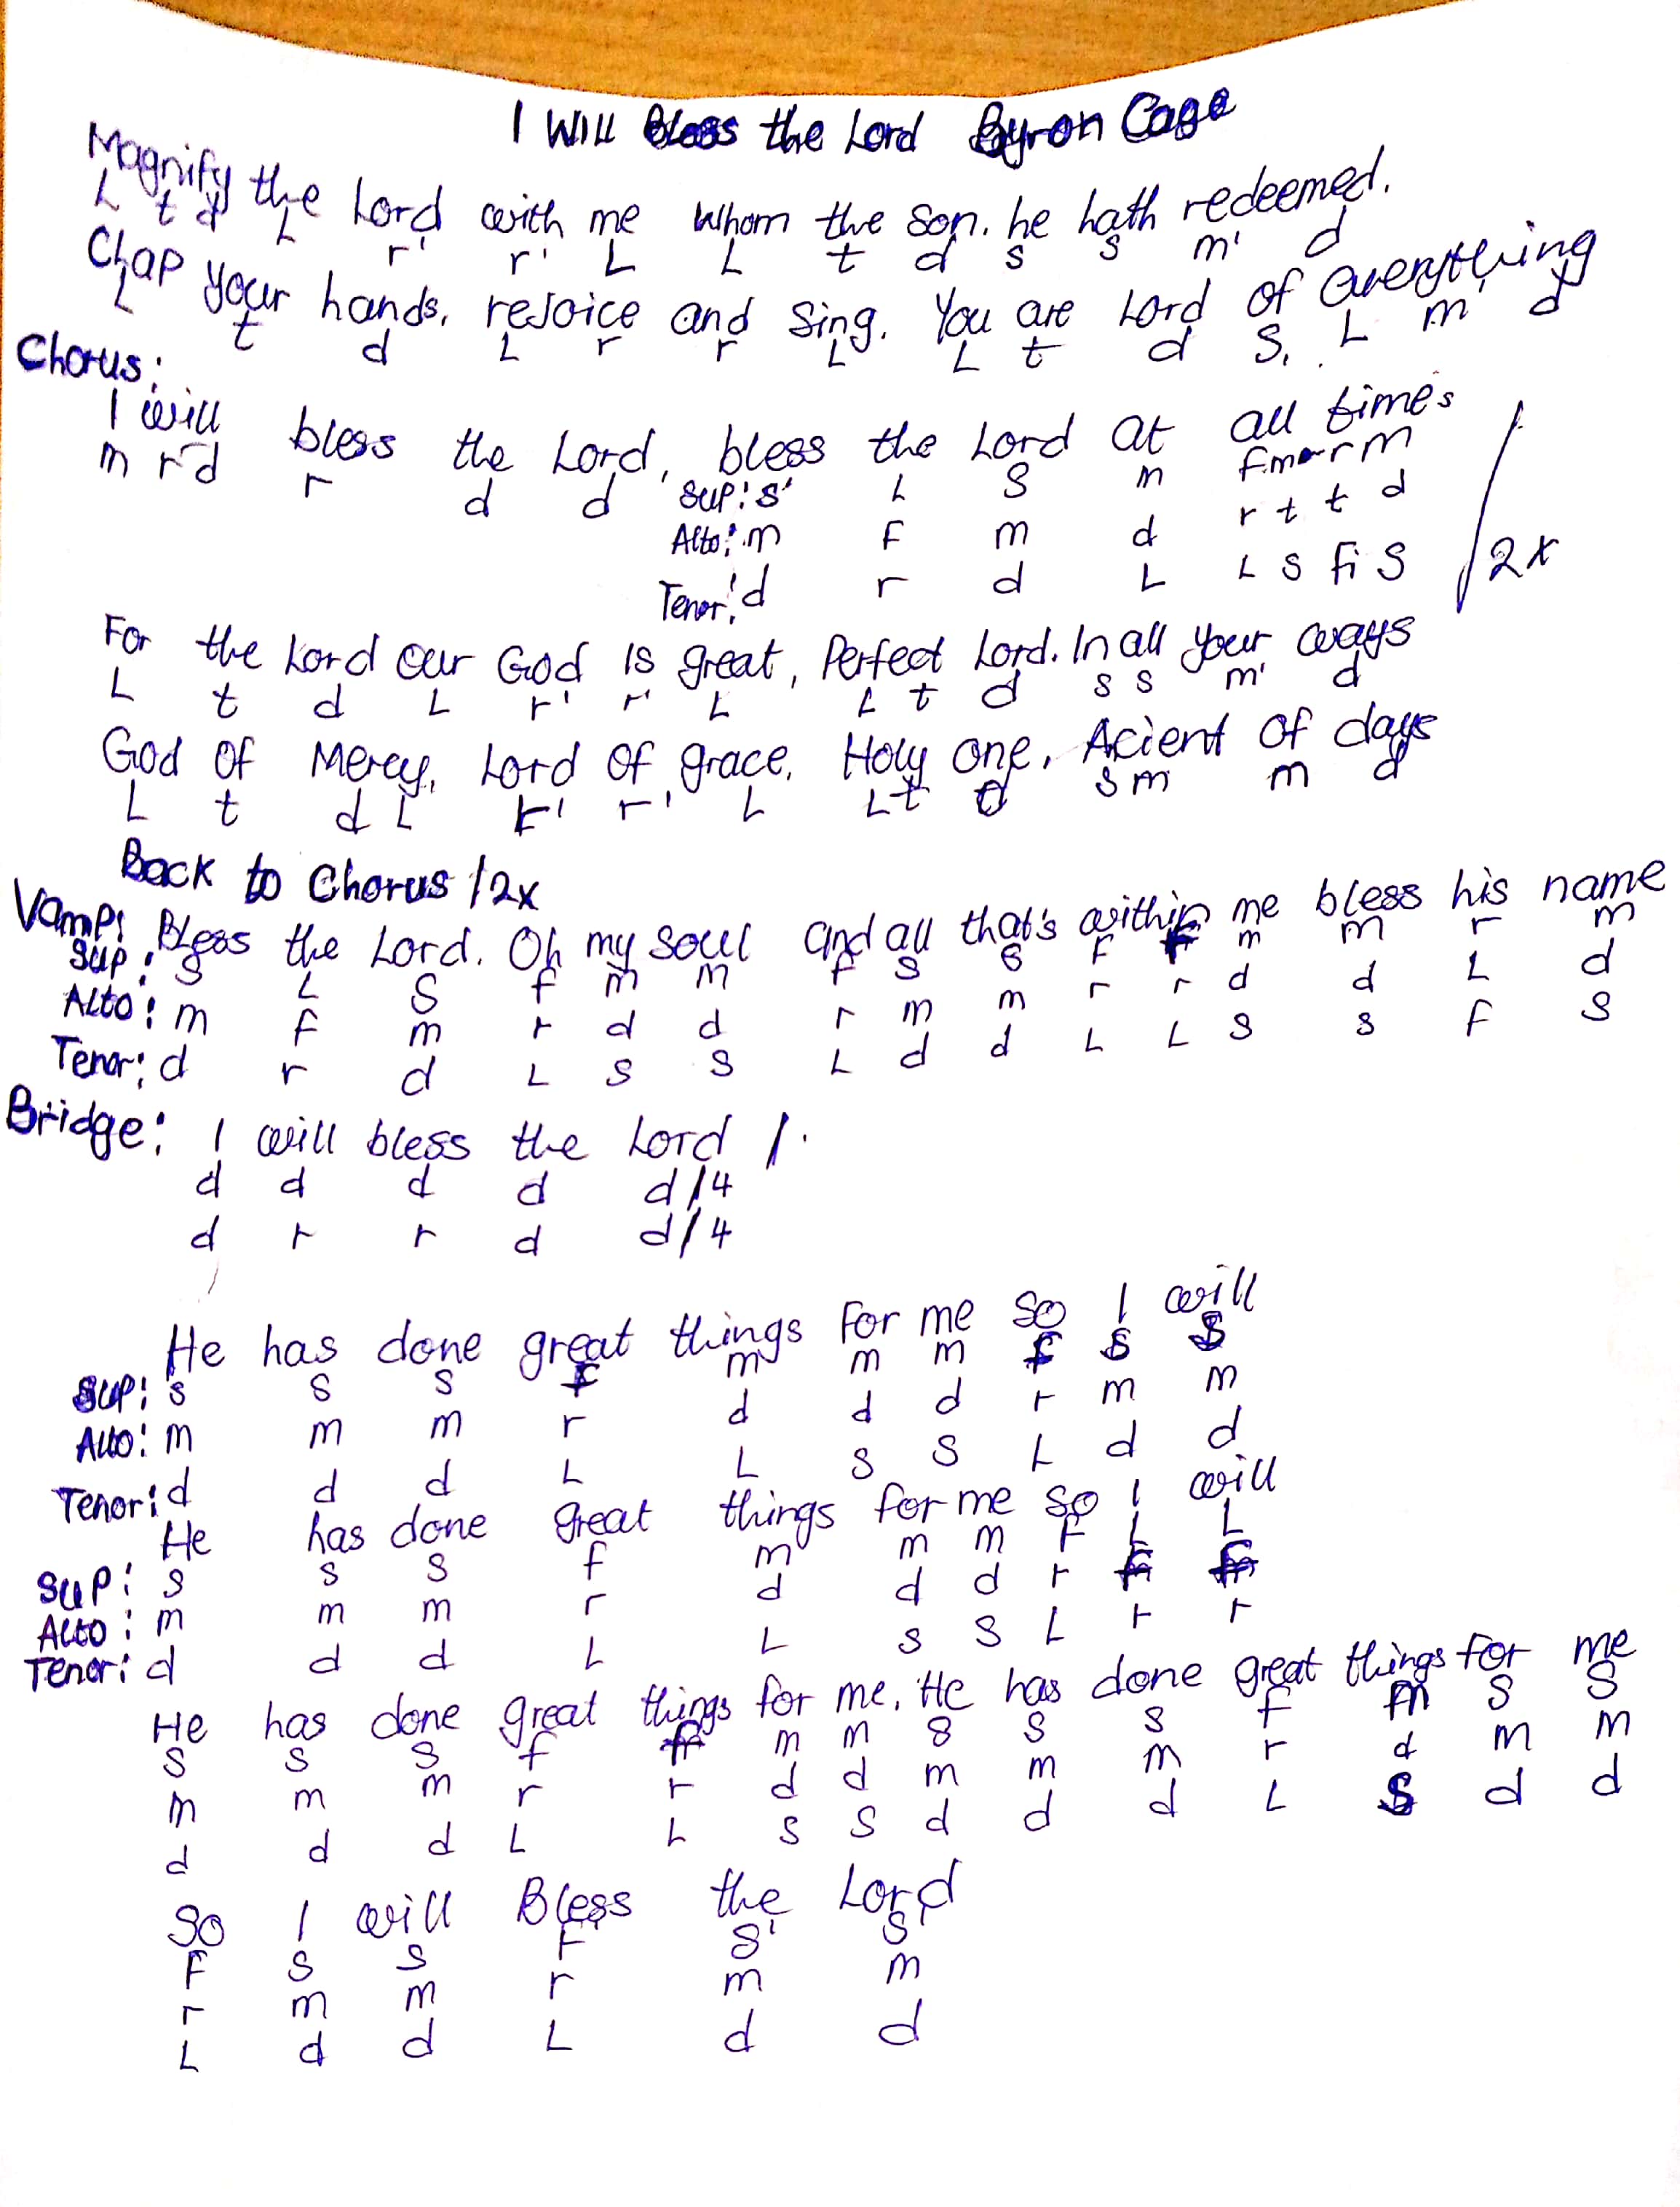 I Will Bless the Lord Byron Cage
Magnify the Lord with me whom the son. he hath redeemed.
L t d L r' r' L L t d s s m' d
Clap your hands. rejoice and sing. You are Lord of everything
L t d L r r L L t d S, L m' d
Chorus:
I will bless the Lord, bless the Lord at all times
m r d r d d Sup: s' L S m f m r m
Alto: m F m d r t t d
Tenor: d r d L L S Fi S /2x
For the Lord our God is great, Perfect Lord. In all your ways
L t d L r' r' L L t d s s m' d
God of Mercy, Lord of grace. Holy one. Acient of days
L t d L r' r' L L t d s m m d
Back to Chorus /2x
Vamp: Bless the Lord. Oh my soul and all that's within me bless his name
Sup: S L S f m m f s s f f m m r m
Alto: m F m r d d r m m r r d d L d
Tenor: d r d L s s L d d L L s s F s
Bridge: I will bless the Lord /.
d d d d d/4
d r r d d/4
He has done great things for me so I will
Sup: s s s f m m m f s s
Alto: m m m r d d d r m m
Tenor: d d d L L s s L d d
He has done great things for me so I will
Sup: s s s f m m m F L L
Alto: m m m r d d d r
Tenor: d d d L L s s L r r
He has done great things for me. He has done great things for me
S S S f m m s s s f m s s
m m m r r d d m m m r d m m
d d d L L s s d d d L S d d
So I will Bless the Lord
F S S F S' S'
r m m r m m
L d d L d d